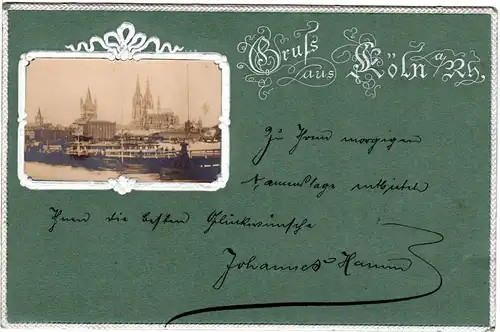 Gruß aus Cöln a/Rh.
Zu Ihrem morgigen
Namenstage entbietet
Ihnen die besten Glückwünsche
Johannes Hamm